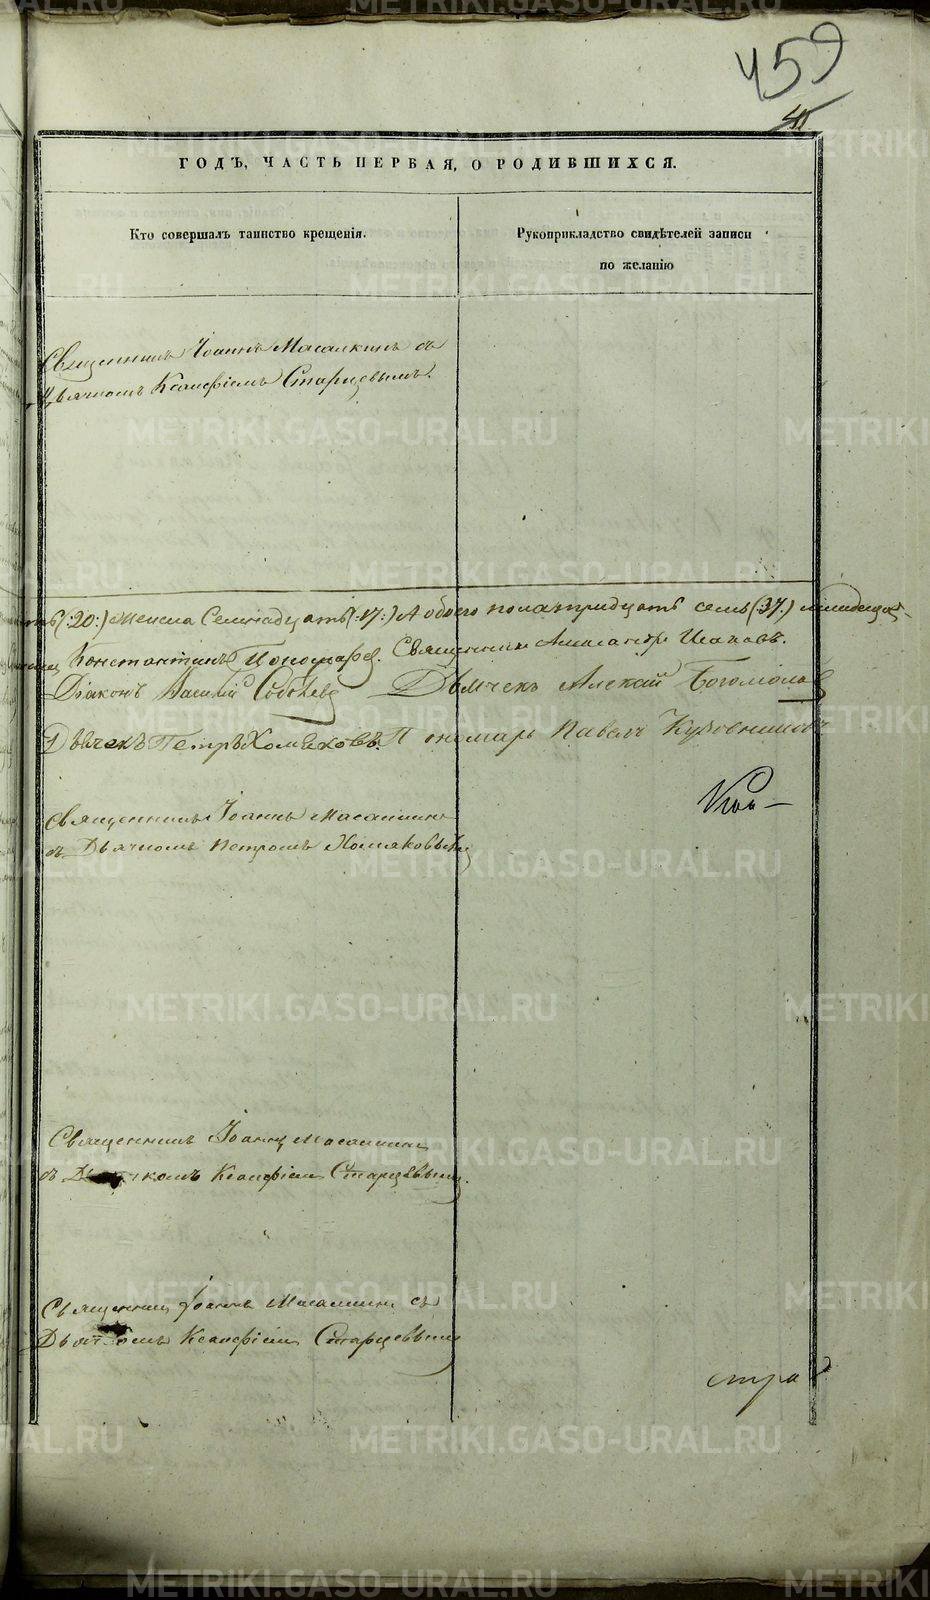 459
ГОДЪ, ЧАСТЬ ПЕРВАЯ, О РОДИВШИХСЯ.
Кто совершалъ таинство крещенія.
Рукоприкладство свидѣтелей записи
по желанію
Священникъ Іоаннъ Масалкинъ съ
Дьячкомъ Ксанфіемъ Старцевымъ.
(:20:) Женска Семнадцать (:17:) А обоего пола тридцать семь (:37:) младенцевъ
Константинъ Священникъ Александръ Исаковъ.
Діаконъ Василій Дьячекъ Алексій Богомолов
Дьячекъ Петръ Хомяковъ. Пономарь Павелъ
Священникъ Іоаннъ Масалкинъ
съ Дьячкомъ Петромъ Хомяковымъ
Священникъ Іоаннъ Масалкинъ
съ Ксанфіемъ Старцевымъ.
Священникъ Іоаннъ Масалкинъ съ
Ксанфіемъ Старцевымъ
METRIKI.GASO-URAL.RU